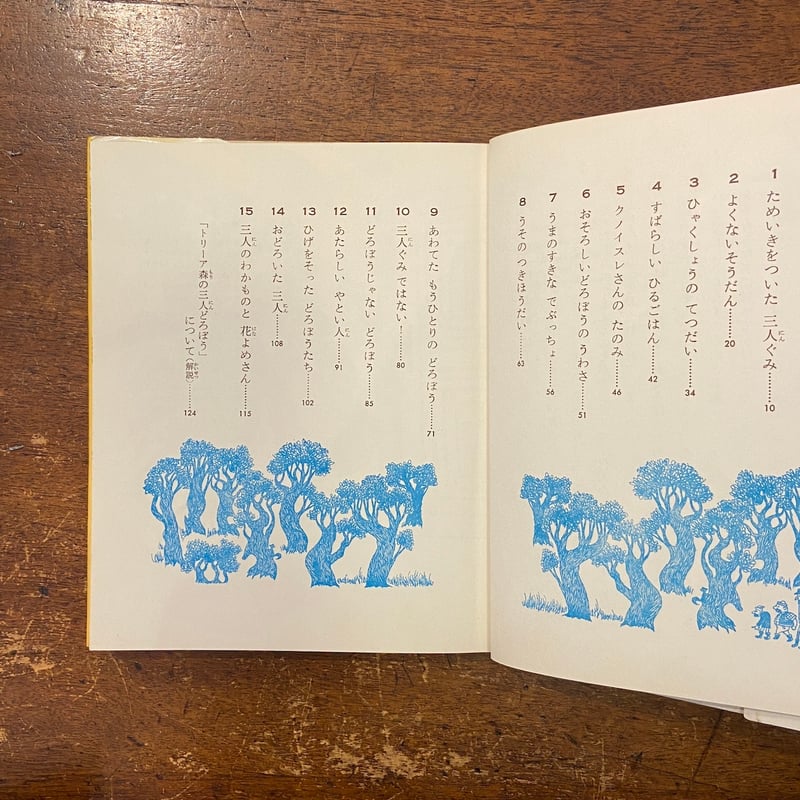 1 ためいきをついた 三人ぐみ……10
2 よくないそうだん……20
3 ひゃくしょうの てつだい……34
4 すばらしい ひるごはん……42
5 クノイスレさんの たのみ……46
6 おそろしいどろぼうの うわさ……51
7 うまのすきな でぶっちょ……56
8 うその つきほうだい……63
9 あわてた もうひとりの どろぼう……71
10 三人ぐみ ではない!……80
11 どろぼうじゃない どろぼう……85
12 あたらしい やとい人……91
13 ひげをそった どろぼうたち……102
14 おどろいた 三人……108
15 三人のわかものと 花よめさん……115
「トリーア森の三人どろぼう」
について(解説)……124